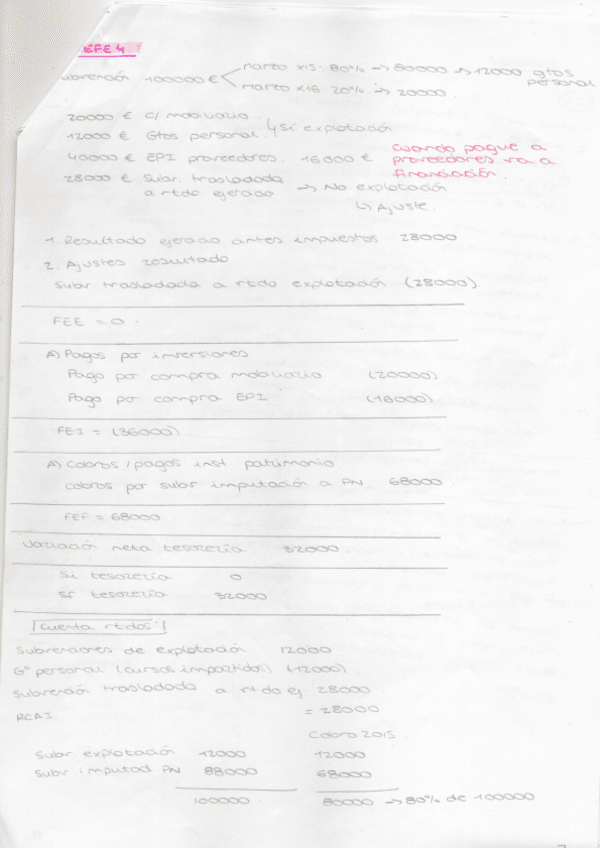 EFE 4
ubvención 100000 € marzo x15: 80% → 80000 → 12000 gtos personal
marzo x16: 20% → 20000.
20000 € c/ mobiliario.
12000 € Gtos personal. ↳ Sí explotación
40000 € EPI proveedores. 16000 € Cuando pague a proveedores va a financiación.
28000 € Subv. trasladada a rtdo ejercicio → No explotación
↳ Ajuste.
1. Resultado ejercicio antes impuestos 28000
2. Ajustes resultado
Subv trasladada a rtdo explotación (28000)
FEE = 0.
A) Pagos por inversiones
Pago por compra mobiliario (20000)
Pago por compra EPI (16000)
FEI = (36000)
A) Cobros / pagos inst patrimonio
cobros por subv imputación a PN 68000
FEF = 68000
Variación neta tesorería 32000.
Si tesorería 0
Sf tesorería 32000
Cuenta rtdos
Subvenciones de explotación 12000
Gº personal (cursos impartidos) (12000)
Subvención trasladada a rtdo ej. 28000
RCAI = 28000
Cobro 2015.
Subv. explotación 12000 12000
Subv imputad PN 88000 68000
100000 80000 → 80% de 100000